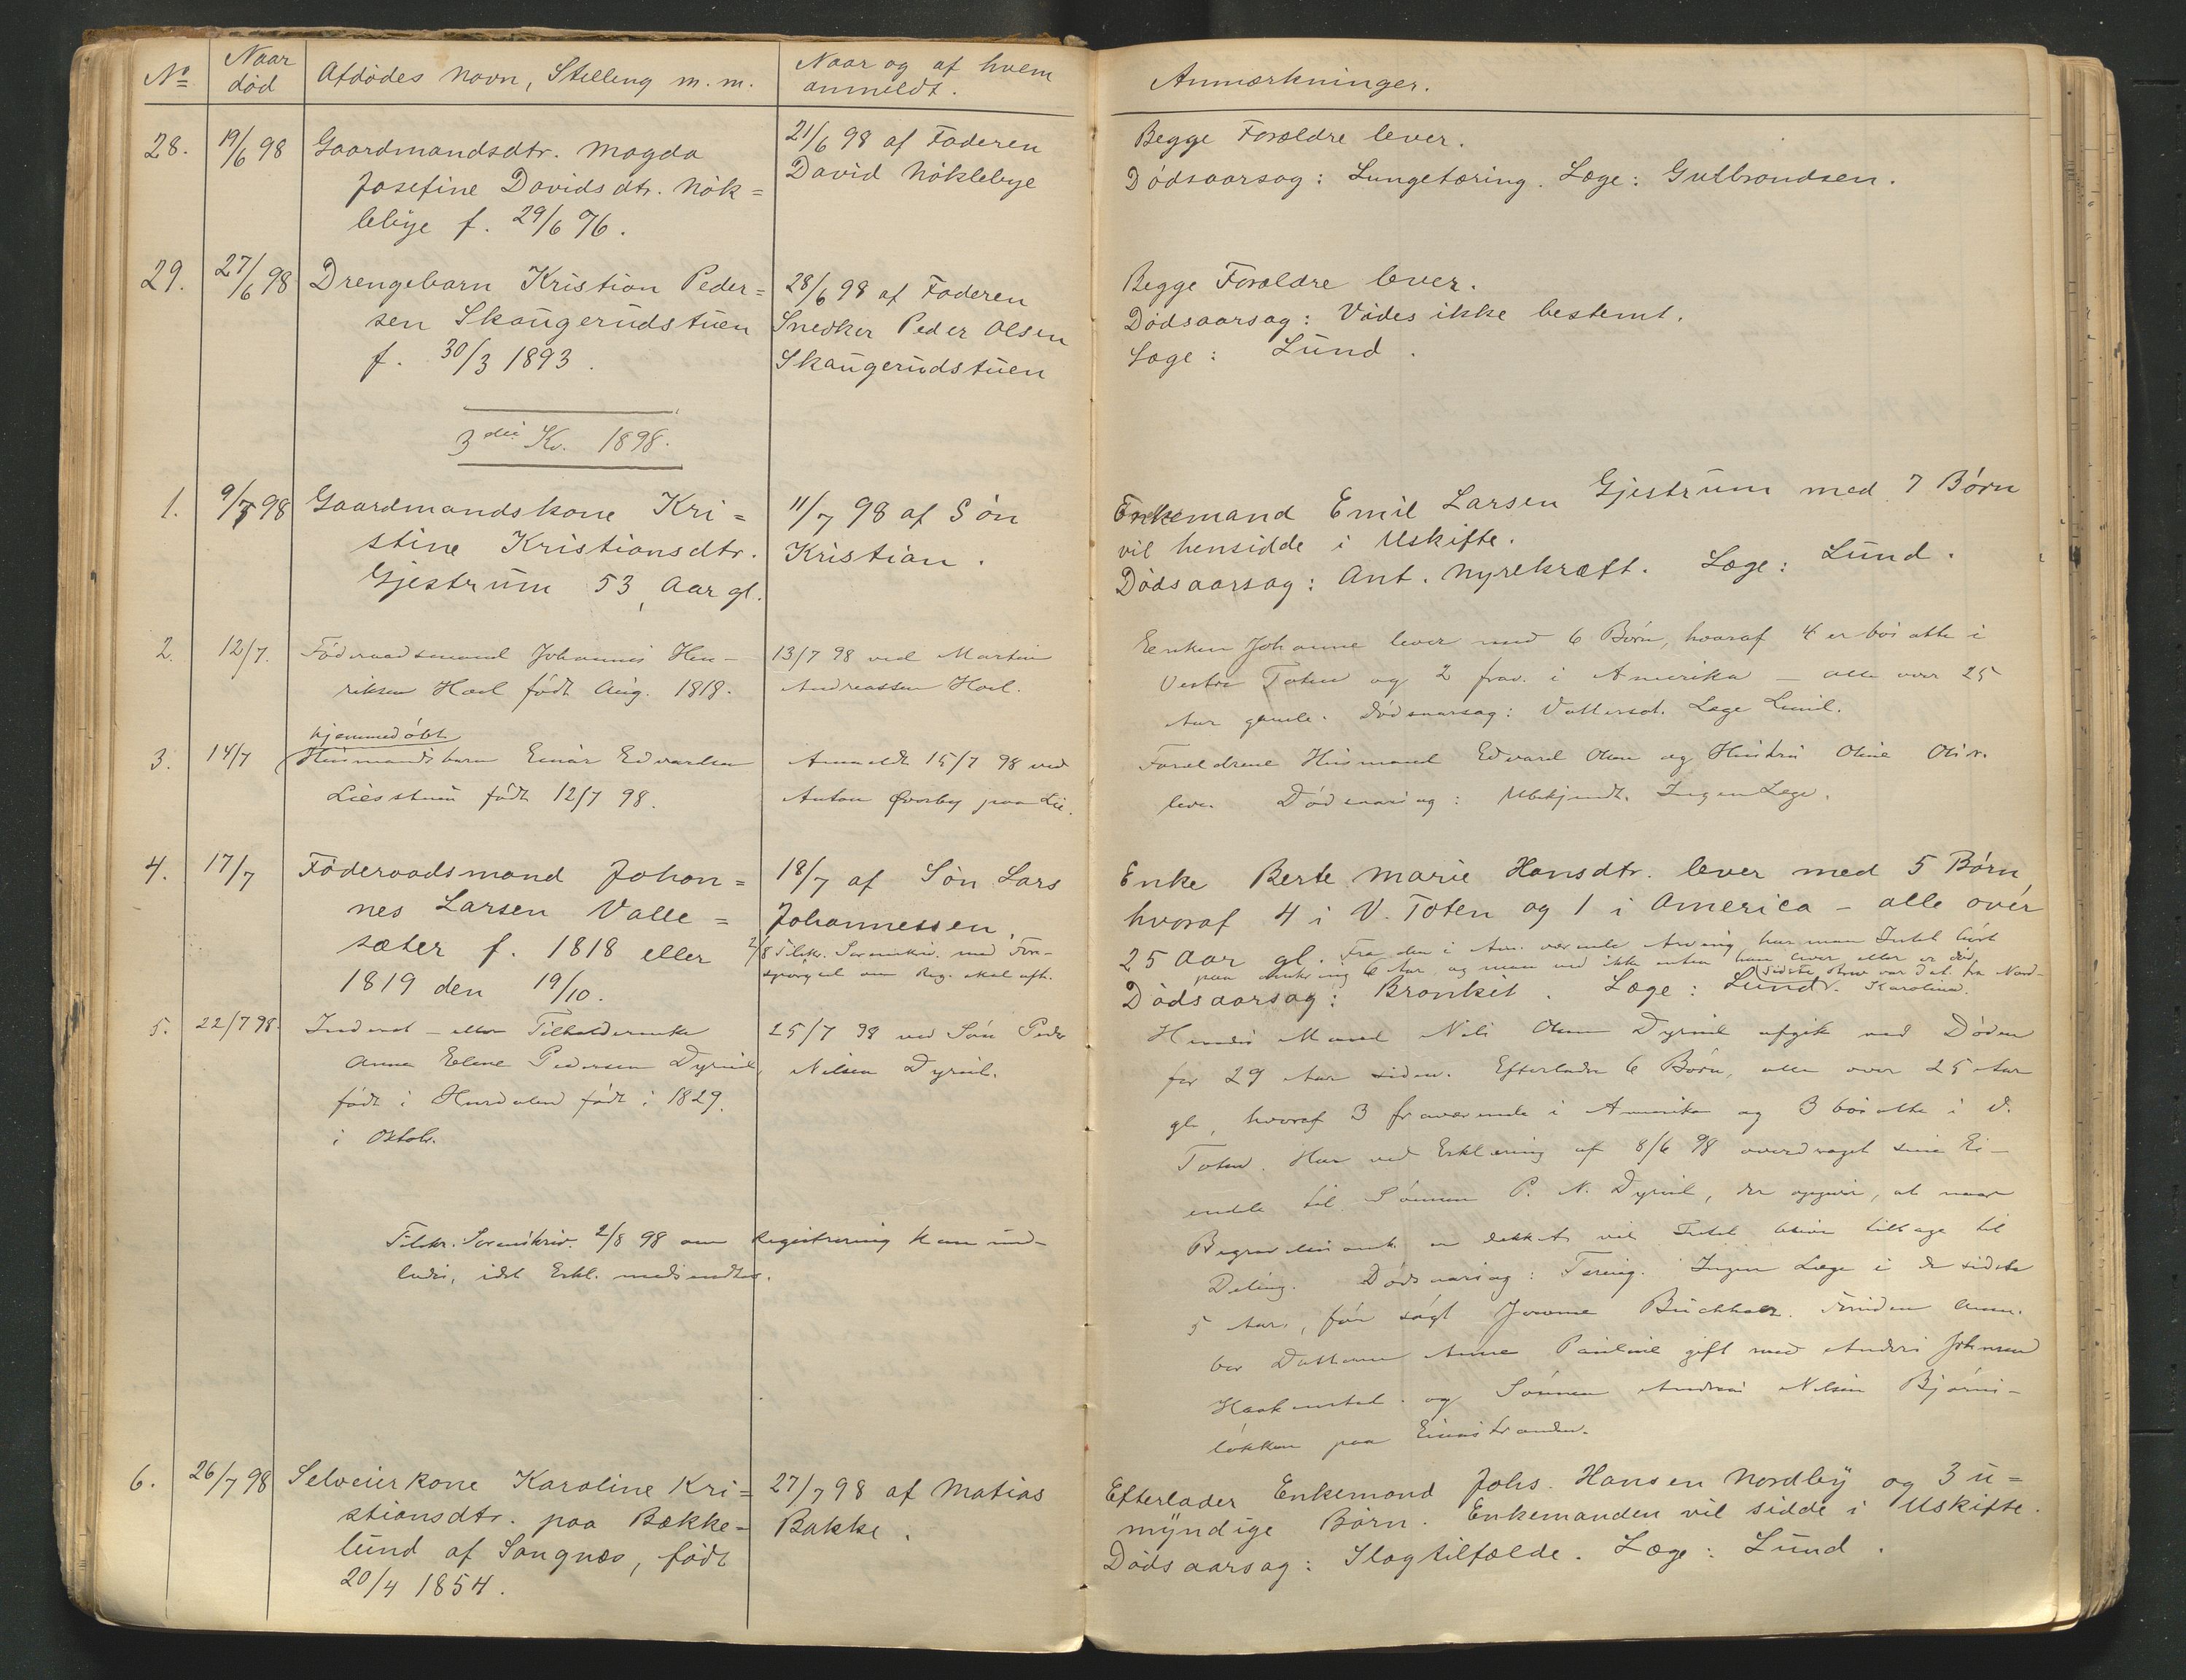 No Naar død Afdødes Navn, Stilling m.m. Naar og af hvem anmeldt. Anmærkninger.
28. 19/6 98 Gaardmandsdtr. Magda
Josefine Davidsdtr. Nök=
lebye f. 29/6 76.
21/6 98 af Faderen
David Nöklebye
Begge Forældre lever.
Dödsaarsag: Lungetæring. Læge: Gulbrandsen.
29. 27/6 98 Drengebarn Kristian Peder=
sen Skaugerudstuen
f. 30/3 1893.
28/6 98 af Faderen
Snedker Peder Olsen
Skaugerudstuen
Begge Forældre lever.
Dödsaarsag: Vides ikke bestemt.
Læge: Lund.
3die Kv. 1898.
1. 9/7 98 Gaardmandskone Kri=
stine Kristiansdtr.
Gjestrum 53 Aar gl.
11/7 98 af Sön
Kristian.
Enkemand Emil Larsen Gjestrum med 7 Börn
vil hensidde i Uskifte.
Dödsaarsag: Ant. Nyrekræft. Læge: Lund.
2. 12/7. Föderaadsmand Johannes Hen-
riksen Hoel født Aug. 1818.
13/7 98 ved Martin
Andreassen Hoel.
Enken Johanne lever med 6 Börn, hvoraf 4 er bosatte i
Vestre Toten og 2 frav. i Amerika - alle over 25
Aar gamle. Dödsaarsag: Vattersot. Læge Lund.
3. 14/7 hjemmedöbt
Husmandsbarn Einar Edvardsen
Liesstuen født 12/7 98.
Anmeldt 15/7 98 ved
Anton Øvrby paa Lie.
Forældrene Husmand Edvard Olsen og Hustru Oline Olsdr.
lever. Dödsaarsag: Ubekjendt. Ingen Læge.
4. 17/7 Föderaadsmand Johan=
nes Larsen Valle=
sæter f. 1818 eller
1819 den 19/10.
18/7 af Sön Lars
Johannessen.
2/8 Tilskr. Sorenskriv. med For-
spörgsel om Reg. skal afh.
Enke Berte Marie Hansdtr. lever med 5 Börn,
hvoraf 4 i V. Toten og 1 i America - alle over
25 Aar gl. Fra den i Am. værende Arving har man Intet hört
paa omkring 6 Aar, og man ved ikke enten han lever eller er död.
Sidste Brev var dat. fra Nord-
Karolina.
Dödsaarsag: Bronkit. Læge: Lund.
5. 22/7 98. Inderst - eller Tilholdsenke
Anna Elene Pedersen Dyrud,
født i Hurdalen født i 1829.
i Oktob.
25/7 98 ved Sön Peder
Nilsen Dyrud.
Tilskr. Sorenskriv. 2/8 98 om Registrering kan und-
lades, idet Erkl. medsendtes.
Hendes Mand Nils Olsen Dyrud afgik ved Döden
for 29 Aar siden. Efterlader 6 Börn, alle over 25 Aar
gl, hvoraf 3 fraværende i Amerika og 3 bosatte i V.
Toten. Har ved Erklæring af 8/6 98 overdraget sine Ei-
endele til Sönnen P. N. Dyrud, der opgiver, at naar
Begravelsesomk. er dækket vil Intet blive tilbage til
Deling. Dödsaarsag: Tæring. Ingen Læge i de sidste
5 Aar, för sögt Buchholz. Foruden Anm.
bor Datteren Anne Pauline gift med Anders Johnsen
Haakenstad. og Sönnen Andreas Nilsen Björns-
lökken paa Einastranden.
6. 26/7 98 Selveierkone Karoline Kri=
stiansdtr. paa Bække-
lund af Sangnæs, födt
20/4 1854.
27/7 98 af Matias
Bakke.
Efterlader Enkemand Johs. Hansen Nordby og 3 u=
myndige Börn. Enkemanden vil sidde i Uskifte.
Dödsaarsag: Slagtilfælde. Læge: Lund.